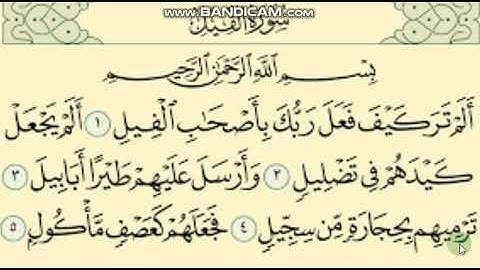 www.BANDICAM.com
سورة الفيل
بِسْمِ اللَّهِ الرَّحْمَٰنِ الرَّحِيمِ
أَلَمْ تَرَ كَيْفَ فَعَلَ رَبُّكَ بِأَصْحَابِ الْفِيلِ ١ أَلَمْ يَجْعَلْ
كَيْدَهُمْ فِي تَضْلِيلٍ ٢ وَأَرْسَلَ عَلَيْهِمْ طَيْرًا أَبَابِيلَ ٣
تَرْمِيهِم بِحِجَارَةٍ مِّن سِجِّيلٍ ٤ فَجَعَلَهُمْ كَعَصْفٍ مَّأْكُولٍ ٥